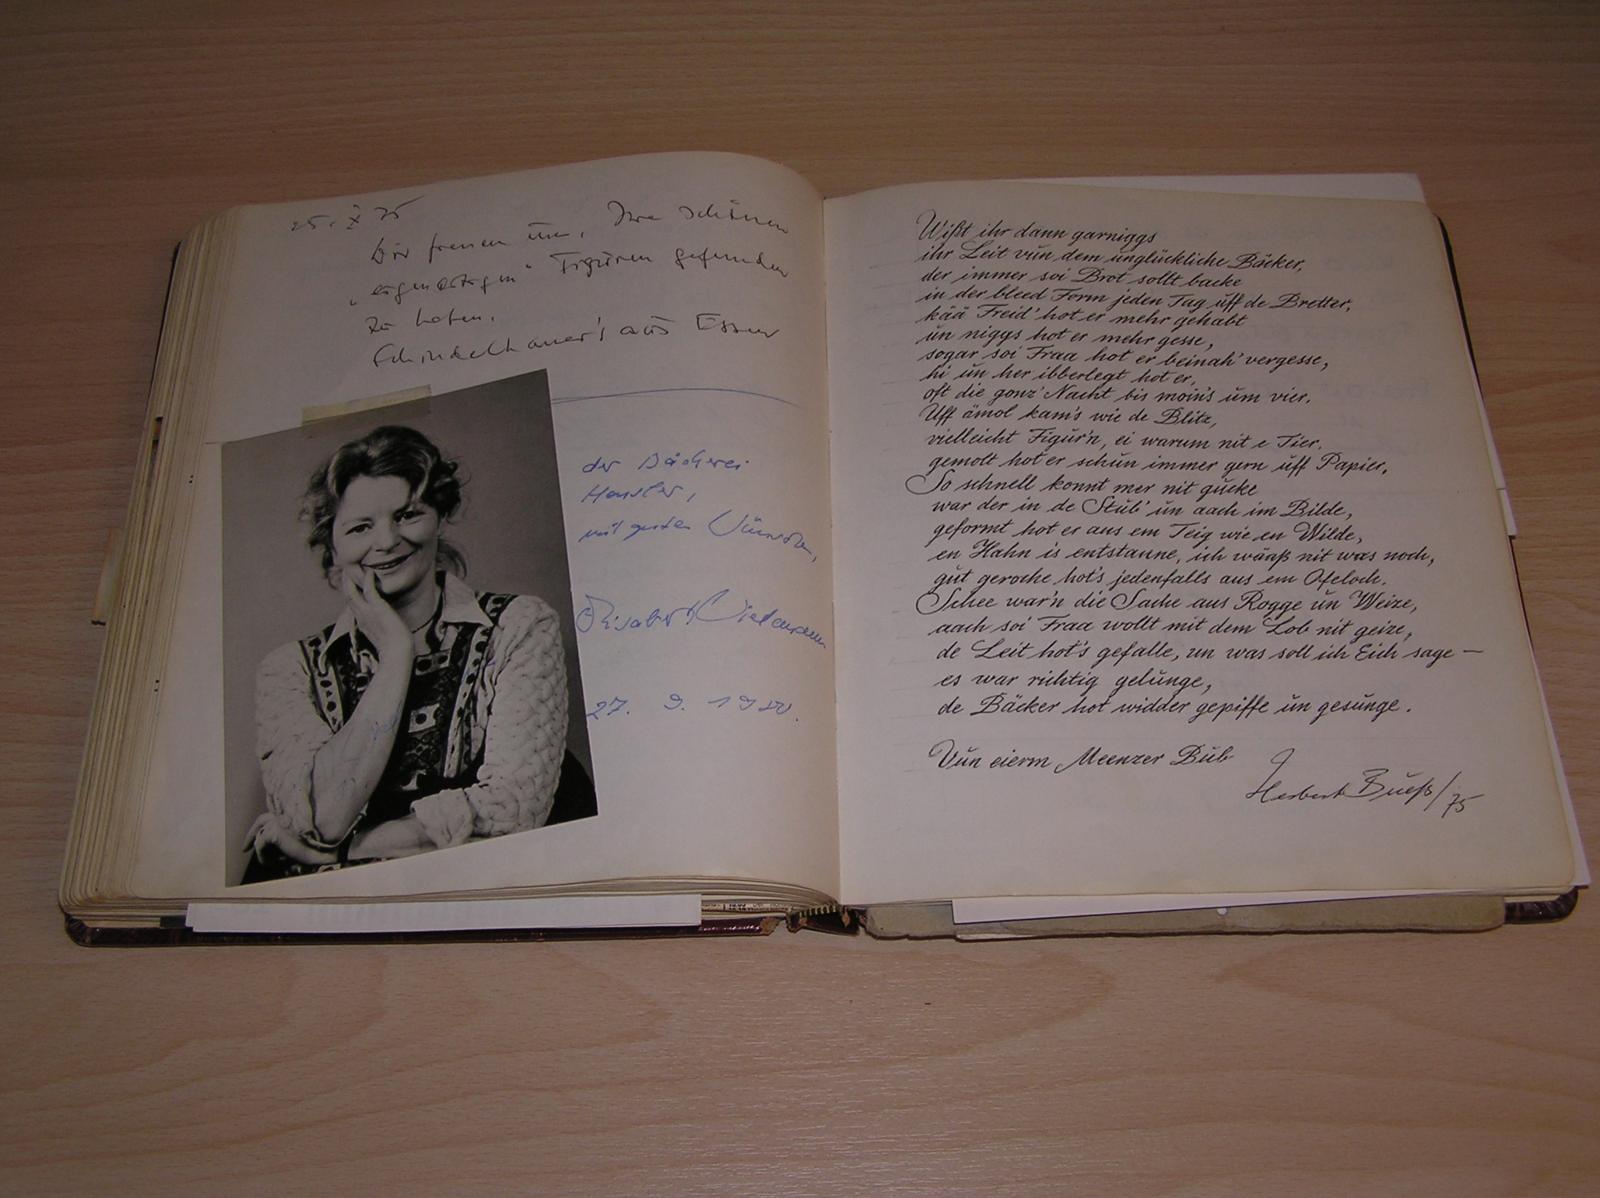 25. X 75
Wir freuen uns, Ihre schönen
„eigenartigen" Figuren gefunden
zu haben.
Schindelhauer's aus Essen
der Bäckerei
mit guten Wünschen,
Elisabeth Wiedemann
27. 9. 1980.
Wißt ihr dann garniggs
ihr Leit vun dem unglückliche Bäcker,
der immer soi Brot sollt backe
in der bleed Form jeden Tag uff de Bretter,
kää Freid' hot er mehr gehabt
un niggs hot er mehr gesse,
sogar soi Fraa hot er beinah' vergesse,
hi un her ibberlegt hot er,
oft die gonz' Nacht bis moin's um vier.
Uff ämol kam's wie de Blitz,
vielleicht Figur'n, ei warum nit e Tier.
gemolt hot er schun immer gern uff Papier,
So schnell konnt mer nit gucke
war der in de Stub' un aach im Bilde,
geformt hot er aus em Teig wie en Wilde,
en Hahn is entstanne, ich wääß nit was noch,
gut geroche hot's jedenfalls aus em Ofeloch.
Schee war'n die Sache aus Rogge un Weize,
aach soi Fraa wollt mit dem Lob nit geize,
de Leit hot's gefalle, un was soll ich Eich sage —
es war richtig gelunge,
de Bäcker hot widder gepiffe un gesunge.
Vun eierm Meenzer Bub
Herbert Bueß/75